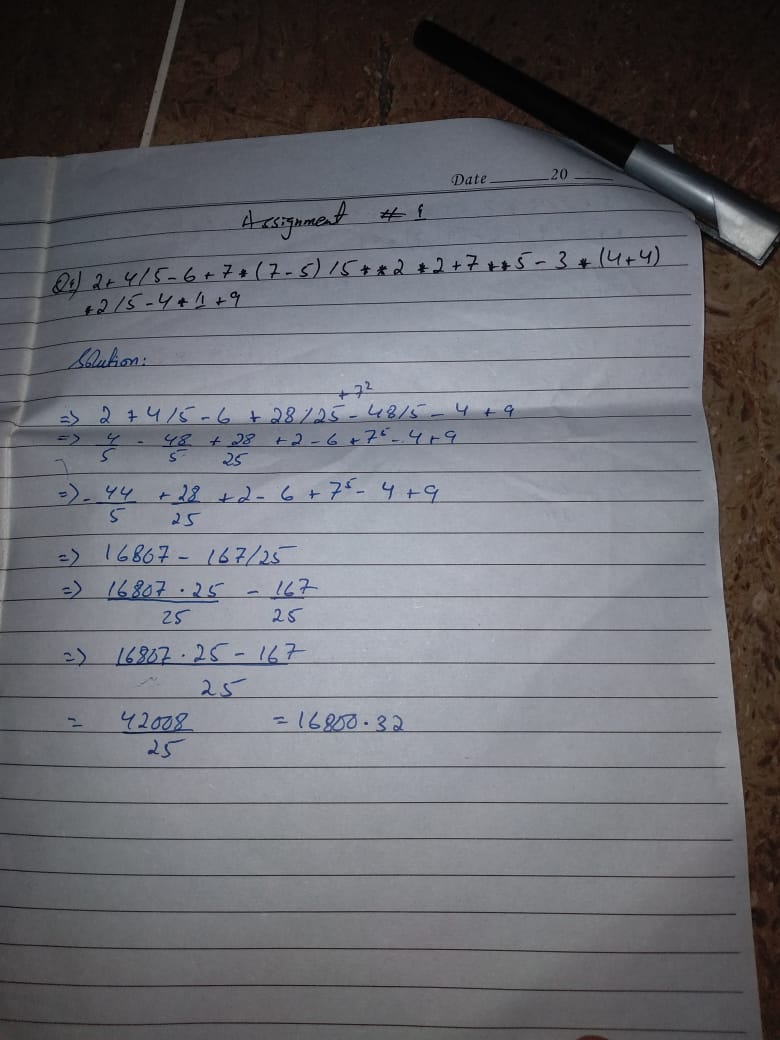 Date 20
Assignment # 1
Q1) 2+4/5-6+7*(7-5)/5**2*2+7**5-3*(4+4)
*2/5-4*1+9
Solution:
+7²
=> 2+4/5-6+28/25-48/5-4+9
=> 4/5 - 48/5 + 28/25 +2-6+7⁵-4+9
=> -44/5 + 28/25 +2-6+7⁵-4+9
=> 16807-167/25
=> 16807·25/25 - 167/25
=> 16807·25-167/25
= 42008/25 =16800.32